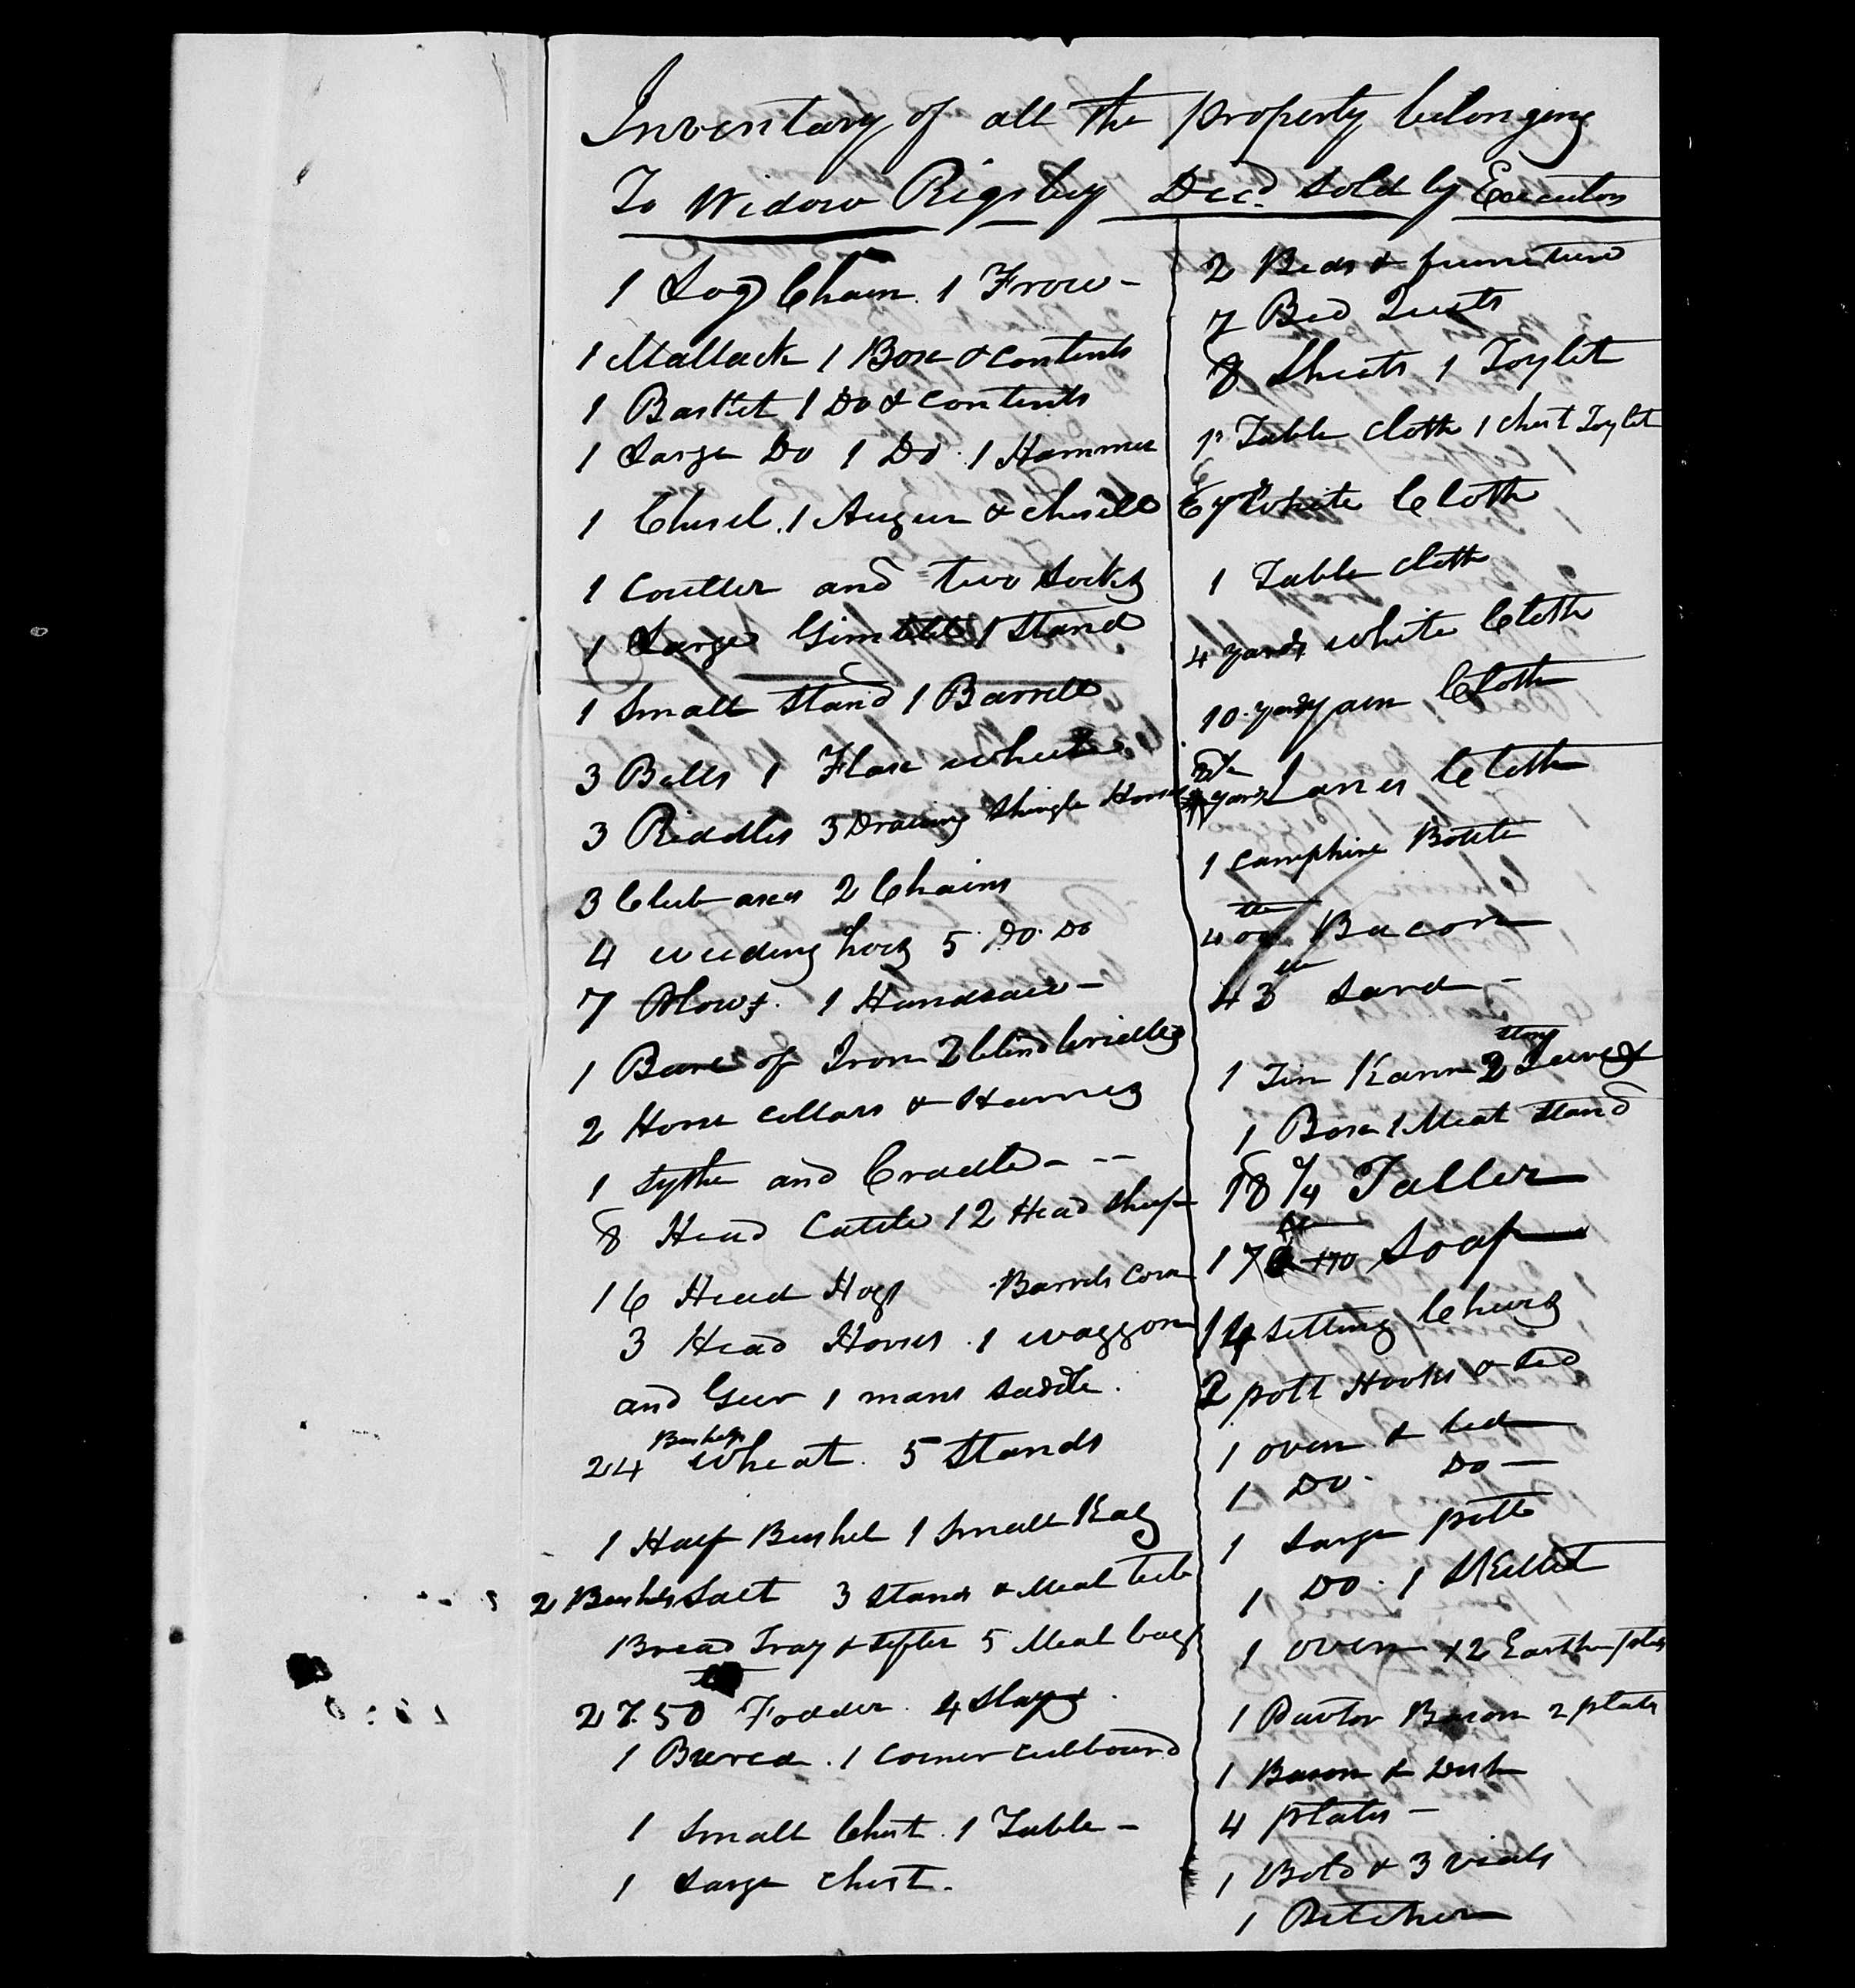 Inventary of all the property belonging
To Widow Rigsby Decd. Sold by Executors
1 Log Chain. 1 Frow -
1 Mattack 1 Box & contents
1 Basket 1 Do & contents
1 Large Do 1 Do. 1 Hammer
1 Chisel. 1 Auger & chisell
1 Coulter and two Socks
1 Large Gimblet 1 Stand
1 Small Stand 1 Barrell
3 Bells 1 Flax wheel
3 Riddles 3 Drawing Shingle Horses
3 Club axes 2 Chains
4 weeding hoes 5 Do. Do
7 Plows. 1 Handsaw -
1 Bare of Iron 2 blind bridles
2 Horse collars & Hames
1 Sythe and Cradle - --
8 Head Cattle 12 Head Sheep
16 Head Hogs Barrels Corn
3 Head Horses. 1 waggon
and Geer 1 mans saddle.
24 Bushels Wheat. 5 Stands
1 Half Bushel 1 Small Kag
2 Bushels Salt 3 Stands & Meal tub
Bread Tray & Sifter 5 Meal bags
2750 Fodder. 4 Slays.
1 Buroa. 1 corner cubboard
1 Small Chest. 1 Table -
1 Large chest.
2 Beds & furneture
7 Bed Quilts
8 Sheets 1 Toylit
1 Table cloth 1 chest Toylit
6 yds White Cloth
1 Table cloth
4 yards white Cloth
10 yards yarn Cloth
yards Janes Cloth
1 camphire Bottle
400 Bacon
43 Lard -
1 Tin Kann 2 Stone
1 Box 1 Meat Stand
18 3/4 Taller
170 Soap
14 Setting Chears
2 pott Hooks & Led
1 oven & led
1 Do. Do -
1 Large pott
1 Do. 1 Skillet
1 oven & 2 Earthen plates
1 Puter Bason 2 plates
1 Bason & Dish
4 plates -
1 Botl & 3 vials
1 Pitcher